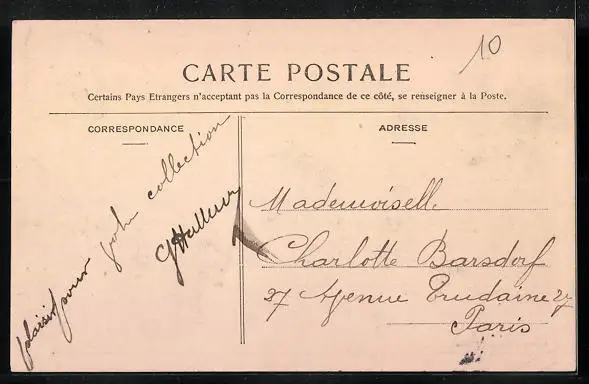 10
CARTE POSTALE
Certains Pays Etrangers n'acceptant pas la Correspondance de ce côté, se renseigner à la Poste.
CORRESPONDANCE
plaisir pour collection
ADRESSE
Mademoiselle
Charlotte Barsdorf
27 Avenue Trudaine 27
Paris